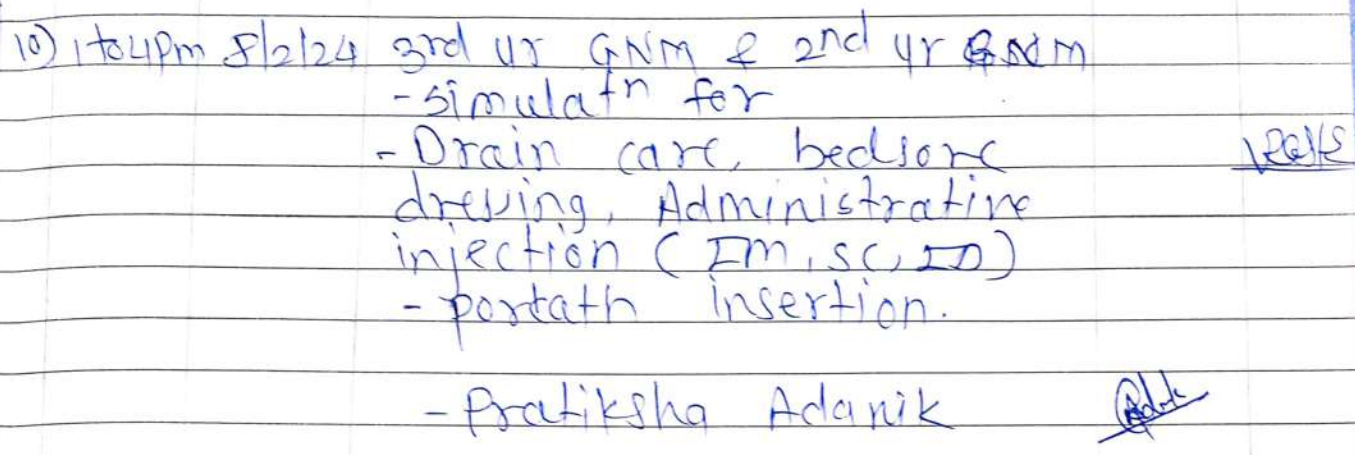 10) 1 to 4pm 8/2/24 3rd yr GNM & 2nd yr GNM
- simulatn for
- Drain care, bedsore
dressing, Administrative
injection (IM, SC, ID)
- portath insertion.
- Pratiksha Adanik